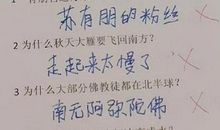 苏有朋的粉丝
2 为什么秋天大雁要飞回南方？
走起来太慢了
3 为什么大部分佛教徒都在北半球？
南无阿弥陀佛